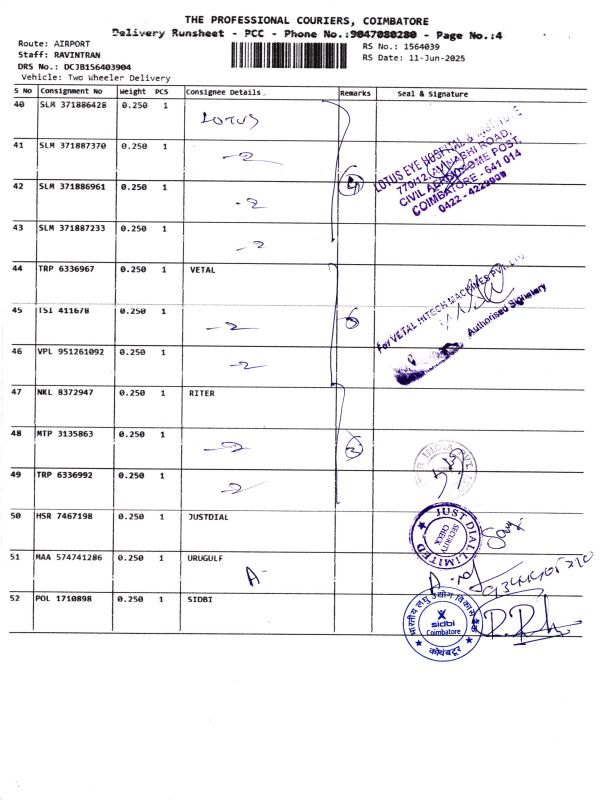 THE PROFESSIONAL COURIERS, COIMBATORE
Delivery Runsheet - PCC - Phone No.:9047080280 - Page No.:4
Route: AIRPORT
RS No.: 1564039
Staff: RAVINTRAN
RS Date: 11-Jun-2025
DRS No.: DCJB156403904
Vehicle: Two Wheeler Delivery
S No Consignment No Weight PCS Consignee Details Remarks Seal & Signature
40 SLM 371886428 0.250 1 LOTUS
41 SLM 371887370 0.250 1
42 SLM 371886961 0.250 1
43 SLM 371887233 0.250 1
LOTUS EYE HOSPITAL & INSTITUTE
770/12, AVINASHI ROAD,
CIVIL AERODROME POST,
COIMBATORE - 641 014
0422 -
44 TRP 6336967 0.250 1 VETAL
45 TSI 411678 0.250 1
46 VPL 951261092 0.250 1
For VETAL HITECH MACHINES PVT. LTD.
Authorised Signatory
47 NKL 8372947 0.250 1 RITER
48 MTP 3135863 0.250 1
49 TRP 6336992 0.250 1
50 HSR 7467198 0.250 1 JUSTDIAL
JUST DIAL LIMITED
SECURITY
CHECK
51 MAA 574741286 0.250 1 URUGULF
52 POL 1710898 0.250 1 SIDBI
भारतीय लघु उद्योग विकास बैंक
sidbi
Coimbatore
कोयंबटूर